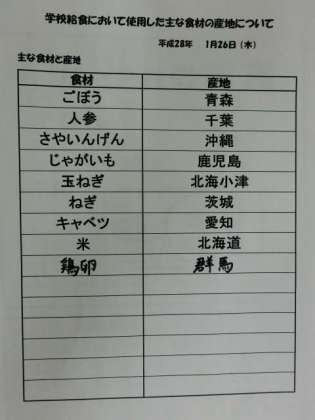 学校給食において使用した主な食材の産地について
平成28年 1月26日（水）
主な食材と産地
食材 産地
ごぼう 青森
人参 千葉
さやいんげん 沖縄
じゃがいも 鹿児島
玉ねぎ 北海小津
ねぎ 茨城
キャベツ 愛知
米 北海道
鶏卵 群馬